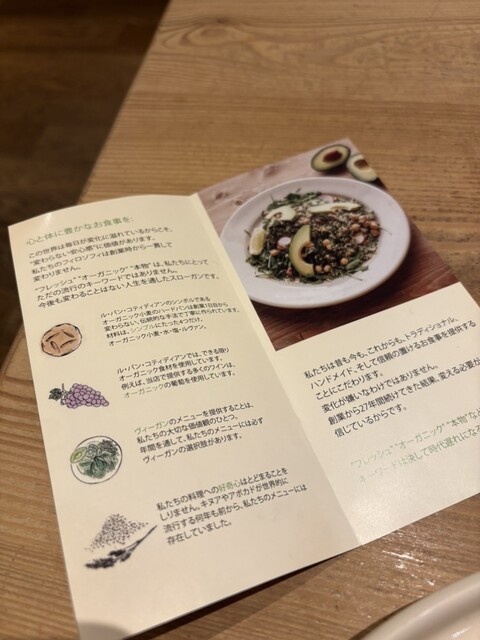 心と体に豊かなお食事を:
この世界は毎日が変化に溢れているからこそ、
“変わらない安心感”に価値があります。
私たちのフィロソフィは創業時から一貫して
変わりません。
“フレッシュ” “オーガニック” “本物”は、私たちにとって
ただの流行のキーワードではありません。
今後も変わることはない人生を通したスローガンです。
ル・パン・コティディアンのシンボルである
オーガニック小麦のハードパンは創業1日目から
変わらない、伝統的な手法で丁寧に作られています。
材料は、シンプルにたった4つだけ。
オーガニック小麦・水・塩・ルヴァン。
ル・パン・コティディアンでは、できる限り
オーガニック食材を使用しています。
例えば、当店で提供する多くのワインは、
オーガニックの葡萄を使用しています。
ヴィーガンのメニューを提供することは、
私たちの大切な価値観のひとつ。
年間を通して、私たちのメニューには必ず
ヴィーガンの選択肢があります。
私たちの料理への好奇心はとどまることを
しりません。キヌアやアボカドが世界的に
流行する何年も前から、私たちのメニューには
存在していました。
私たちは昔も今も、これからも、トラディショナル、
ハンドメイド、そして信頼の置けるお食事を提供する
ことにこだわります。
変化が嫌いなわけではありません。
創業から27年間続けてきた結果、変える必要が
信じているからです。
“フレッシュ” “オーガニック” “本物”など
キーワードは決して時代遅れになる